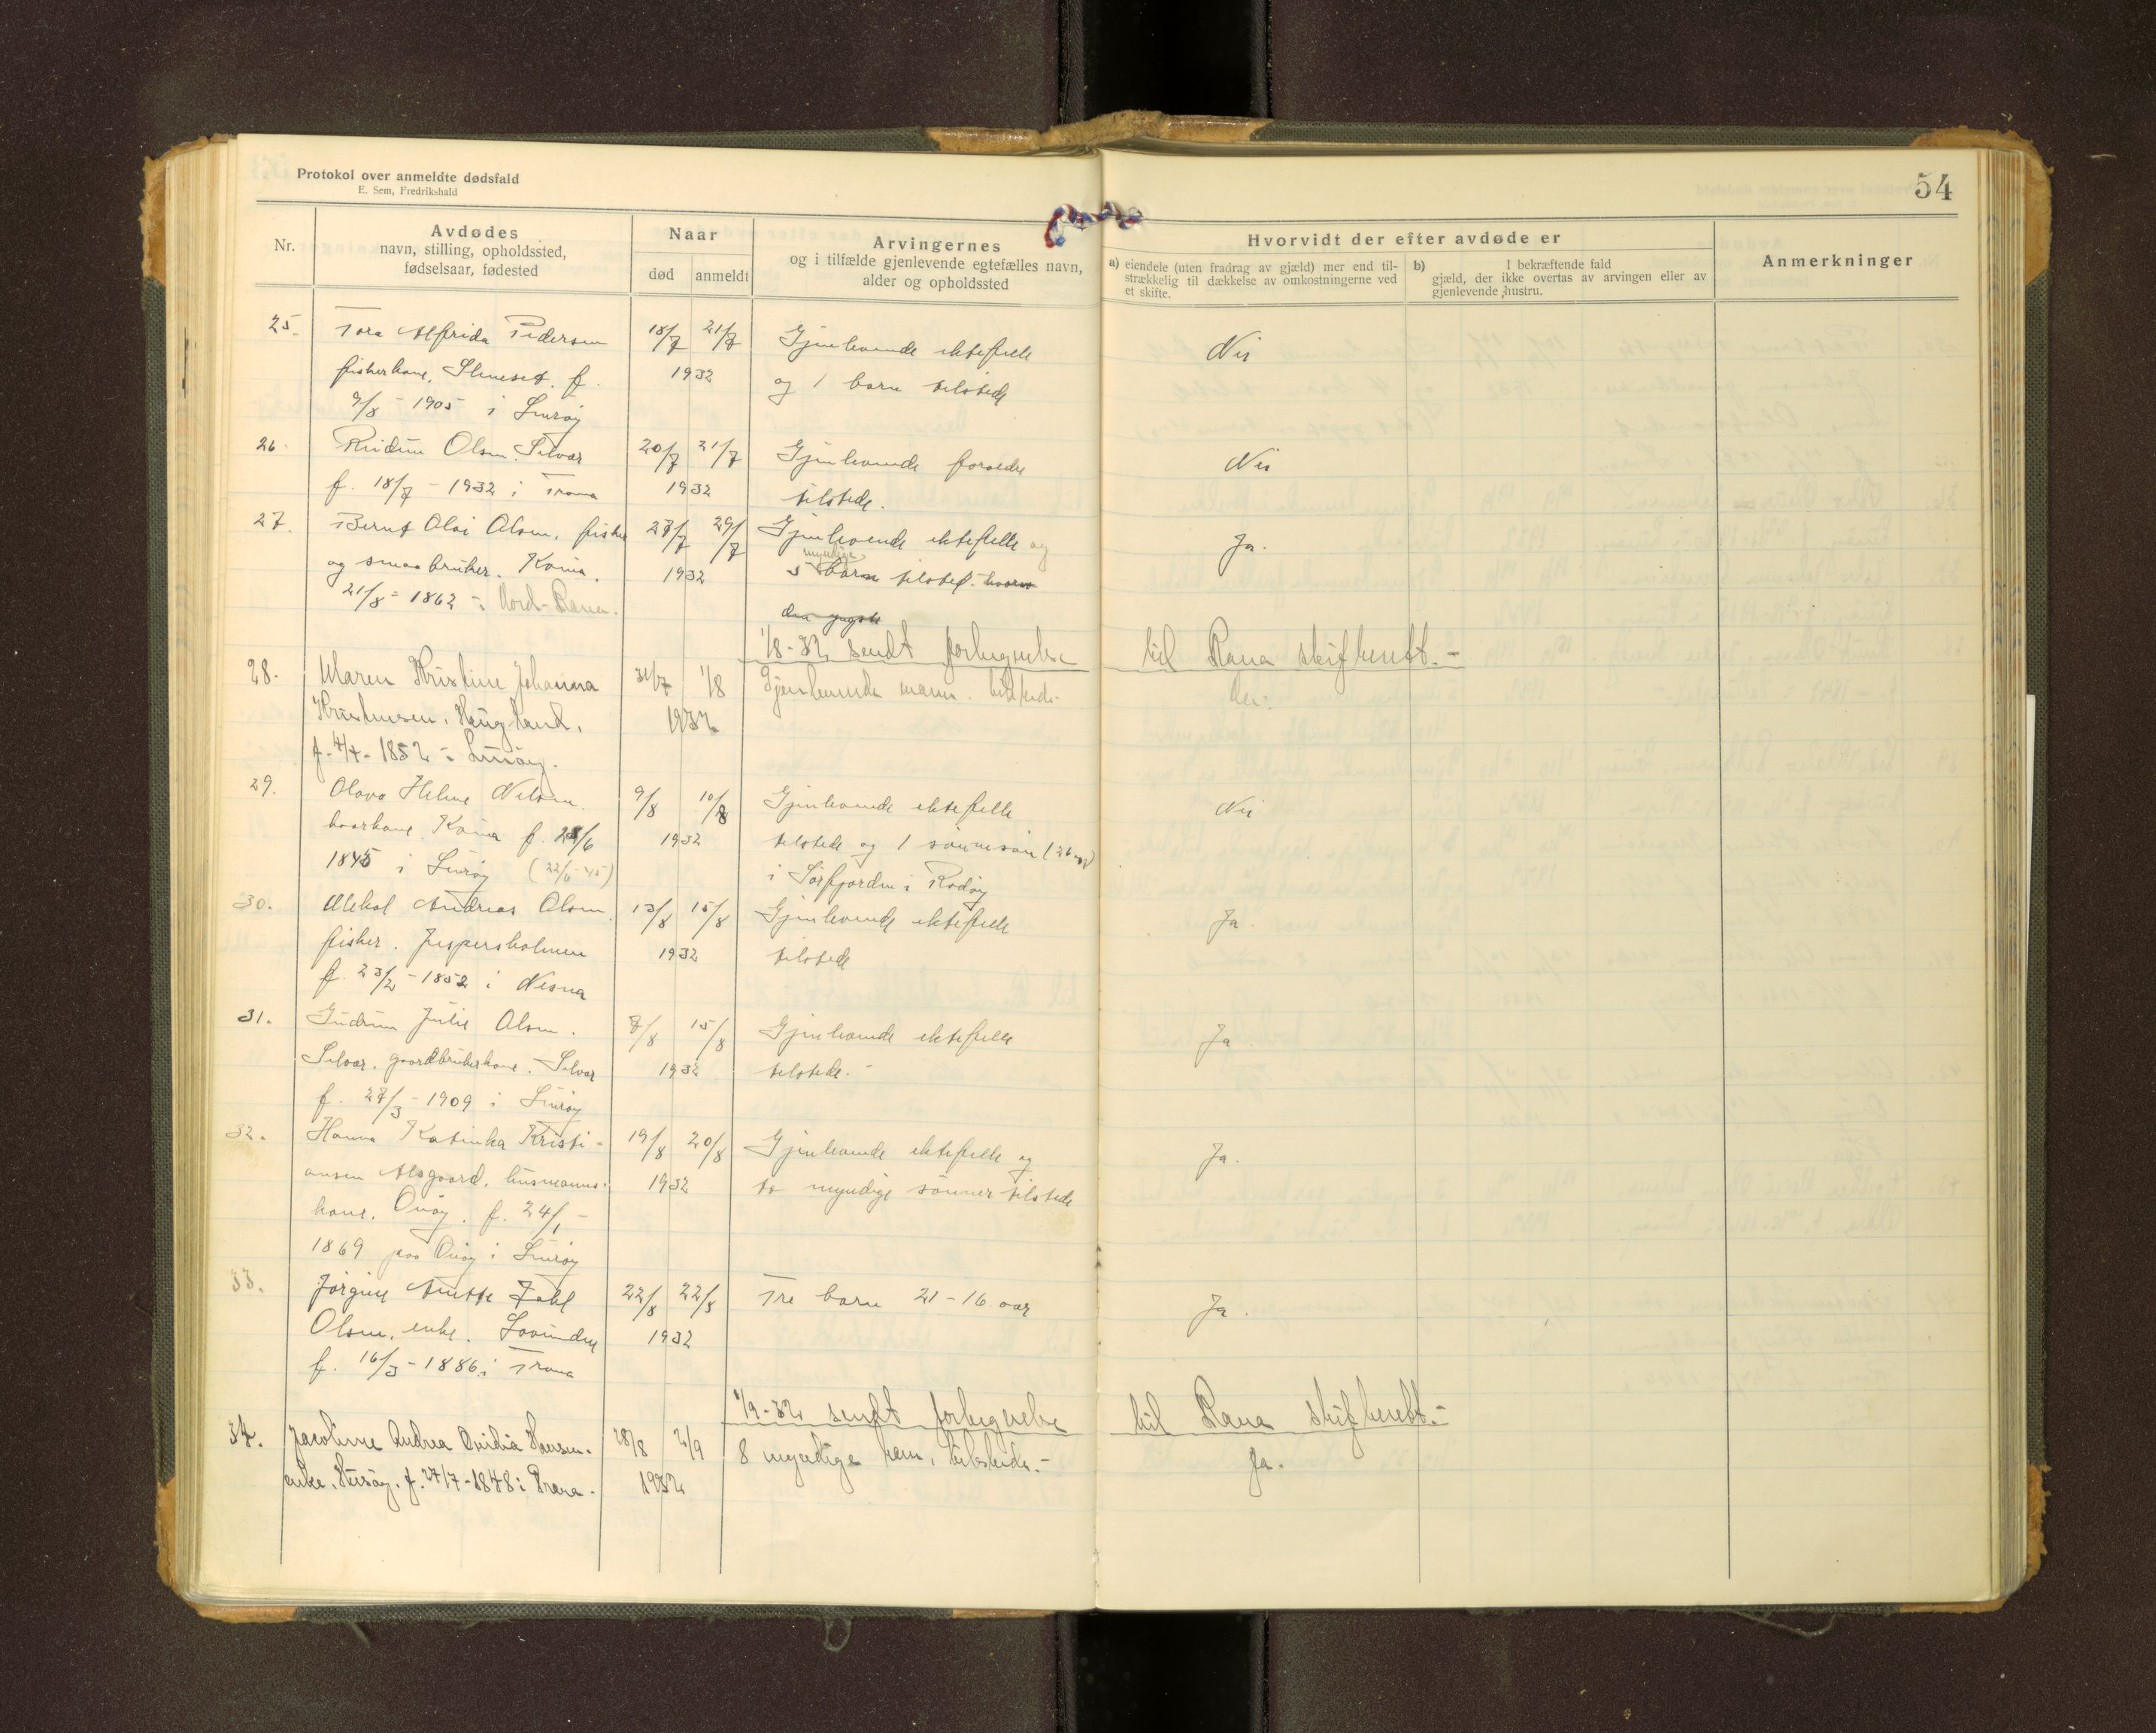 Protokol over anmeldte dødsfald
E. Sem, Fredrikshald
54
Nr.
Avdødes
navn, stilling, opholdssted,
fødselsaar, fødested
Naar
død
anmeldt
Arvingernes
og i tilfælde gjenlevende egtefælles navn,
alder og opholdssted
Hvorvidt der efter avdøde er
a) eiendele (uten fradrag av gjæld) mer end til-
strækkelig til dækkelse av omkostningerne ved
et skifte.
b) I bekræftende fald
gjæld, der ikke overtas av arvingen eller av
gjenlevende hustru.
Anmerkninger
25. Tora Alfrida Pedersen 18/7 21/7 Gjenlevende ektefelle Nei
fiskerkone, Sleneset. f. 1932 og 1 barn tilstede
9/8 - 1905 i Lurøy
26. Olsen. Selvær 20/7 21/7 Gjenlevende foreldre Nei
f. 18/7 - 1932 i Træna 1932 tilstede.
27. Bernt Olai Olsen, fisker 27/7 29/7 Gjenlevende ektefelle og Ja.
myndige
og smaabruker. Kvina. 1932 5 barn tilsted. hvorav
21/8 - 1862 i Nord-Rana.
den yngste
1/8-32 sendt fortegnelse til Rana skifterett.-
28. Maren Kristine Johanna 31/7 1/8 Gjenlevende mann. tilstede. Nei.
Kristensen, Haugland, 1932
f. 4/7 - 1852 i Lurøy.
29. Olava Heline Nilsen. 9/8 10/8 Gjenlevende ektefelle Nei
kaarkone. Kvina f. 28/6 1932 tilstede og 1 sønnesøn (26 aar)
1845 i Lurøy (22/6-45) i Sørfjorden i Rødøy
30. Andreas Olsen. 13/8 15/8 Gjenlevende ektefelle Ja.
fisker. Jespersholmen 1932 tilstede
f. 23/2 - 1852 i Nesna
31. Gudrun Julie Olsen. 7/8 15/8 Gjenlevende ektefelle Ja
Selvær. gaardbrukerkone. Selvær 1932 tilstede.-
f. 27/3 - 1909 i Lurøy
32. Hanna Katinka Kristi- 19/8 20/8 Gjenlevende ektefelle og Ja.
ansen Alsgaard, husmanns- 1932 to myndige sønner tilstede
kone. Onøy. f. 24/1 -
1869 paa Onøy i Lurøy
33. Jørgine Anette Zahl 22/8 22/8 Tre barn 21-16 aar Ja.
Olsen, enke. Lovunden 1932
f. 16/3 - 1886 i Træna
1/9-32 sendt fortegnelse til Rana skifterett.-
34. Jacobine Andrea Ovidia Hansen. 28/8 2/9 8 myndige barn, tilstede.- Ja.
enke. Husøy. f. 27/7 - 1848 i Træna. 1932